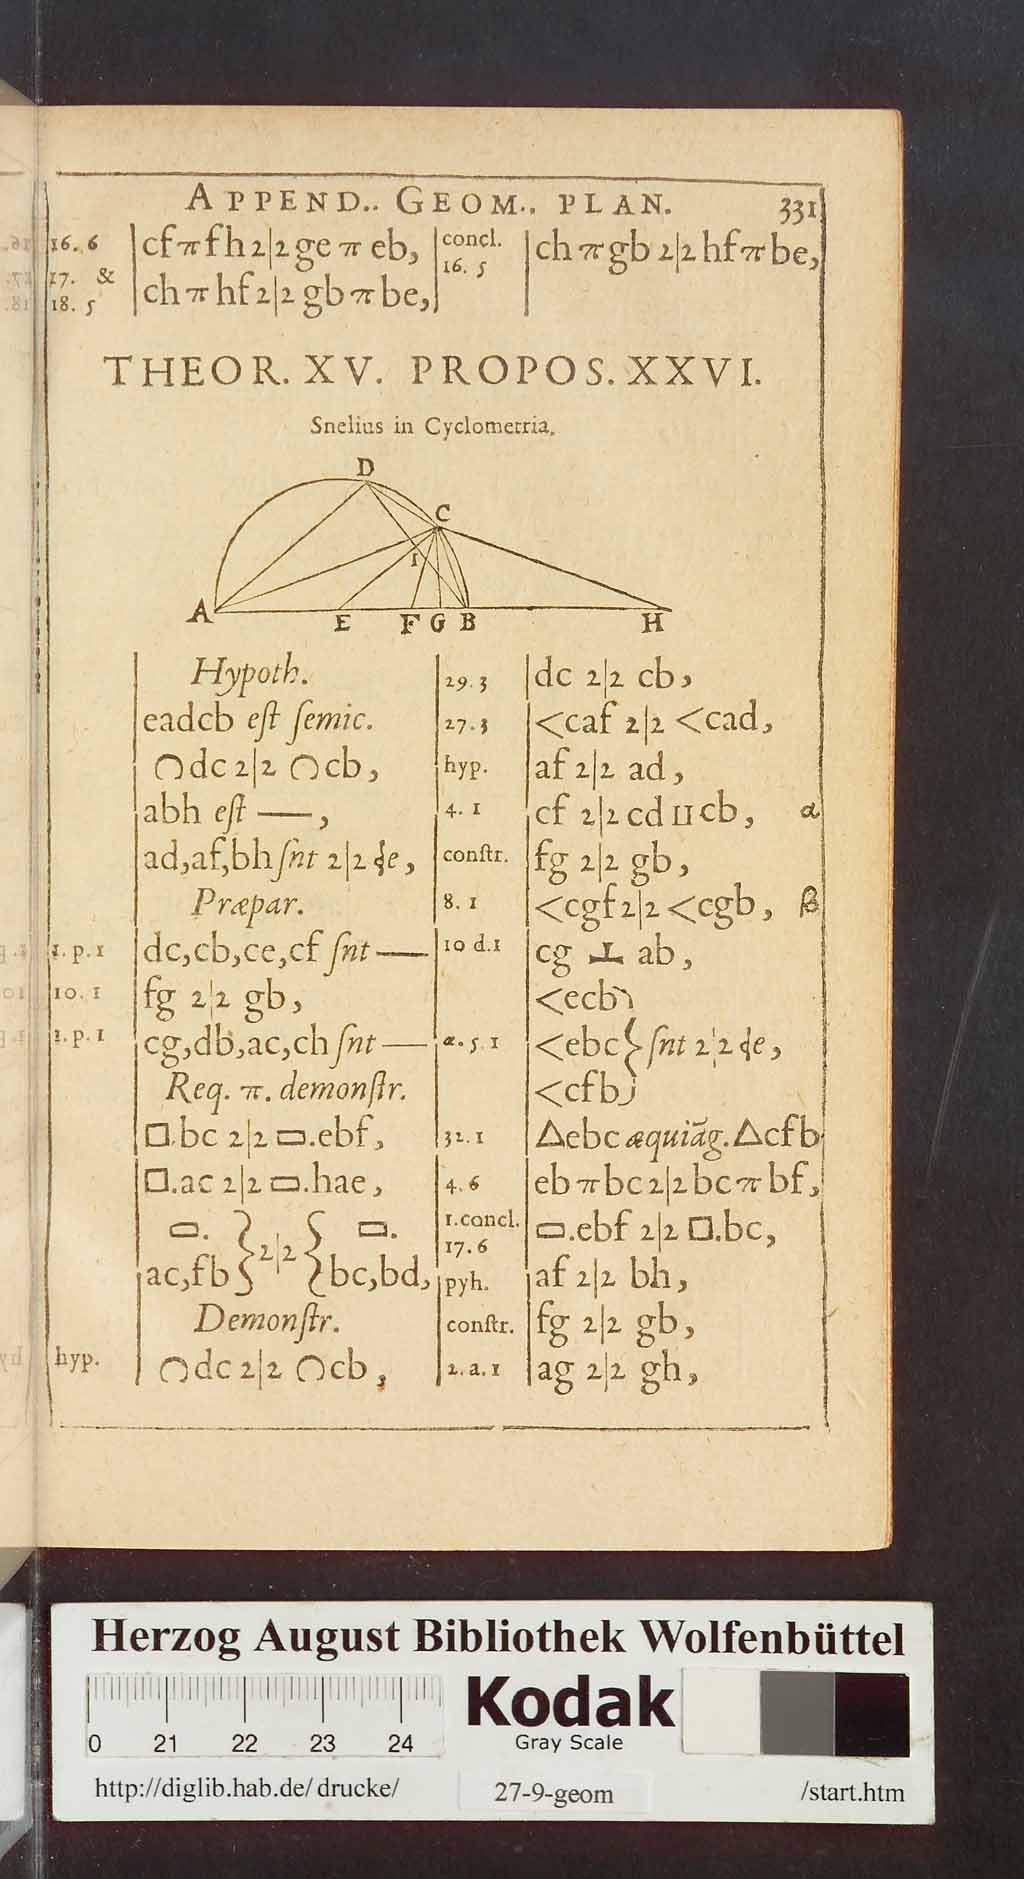 APPEND.. GEOM.. PLAN. 331
16. 6 cf π fh 2|2 ge π eb, concl. 16. 5 ch π gb 2|2 hf π be,
17. & 18. 5 ch π hf 2|2 gb π be,
THEOR. XV. PROPOS. XXVI.
Snelius in Cyclometria.
D
C
I
A E F G B H
Hypoth.
eadcb eſt ſemic.
◠dc 2|2 ◠cb,
abh eſt —,
ad,af,bh ſnt 2|2 ɖe,
Præpar.
1. p. 1 dc,cb,ce,cf ſnt —
10. 1 fg 2|2 gb,
1. p. 1 cg,db,ac,ch ſnt —
Req. π. demonſtr.
□.bc 2|2 ▭.ebf,
□.ac 2|2 ▭.hae,
▭. } 2|2 { ▭.
ac,fb } 2|2 { bc,bd,
Demonſtr.
hyp. ◠dc 2|2 ◠cb,
29. 3 dc 2|2 cb,
27. 3 <caf 2|2 <cad,
hyp. af 2|2 ad,
4. 1 cf 2|2 cd ⊔⊔ cb, α
conſtr. fg 2|2 gb,
8. 1 <cgf 2|2 <cgb, β
10 d.1 cg ⊥ ab,
<ecb }
α. 5. 1 <ebc } ſnt 2|2 ɖe,
<cfb }
32. 1 △ebc æquiãg. △cfb
4. 6 eb π bc 2|2 bc π bf,
1. concl. 17. 6 ▭.ebf 2|2 □.bc,
pyh. af 2|2 bh,
conſtr. fg 2|2 gb,
2. a. 1 ag 2|2 gh,
Herzog August Bibliothek Wolfenbüttel
0 21 22 23 24
Kodak
Gray Scale
http://diglib.hab.de/drucke/ 27-9-geom /start.htm